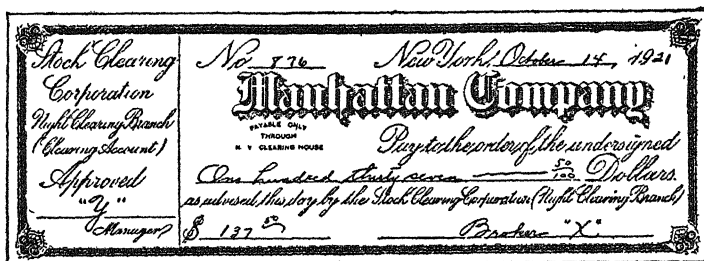 Stock Clearing
Corporation
Night Clearing Branch
(Clearing Account)
Approved
"Y"
Manager
No 876 New York, October 14, 1921
Manhattan Company
PAYABLE ONLY
THROUGH
N. Y. CLEARING HOUSE
Pay to the order of the undersigned
One hundred thirty seven 50/100 Dollars
as advised this day by the Stock Clearing Corporation (Night Clearing Branch)
$ 137 50 Broker "X"